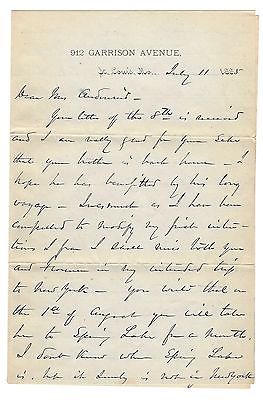 912 GARRISON AVENUE,
St. Louis, Mo. July 11 1885
Dear Mrs Audenried -
Your letter of the 8th is received
and I am really glad for your sake
that your mother is back home - I
hope he has benefitted by his long
voyage - Inasmuch as I have been
compelled to modify my first inten-
tions I fear I shall miss both you
and in my intended trip
to New York - you write that on
the 1st of August you will take
her to Spring Lake for a month.
I dont know where Spring Lake
is, but it surely is not in New York